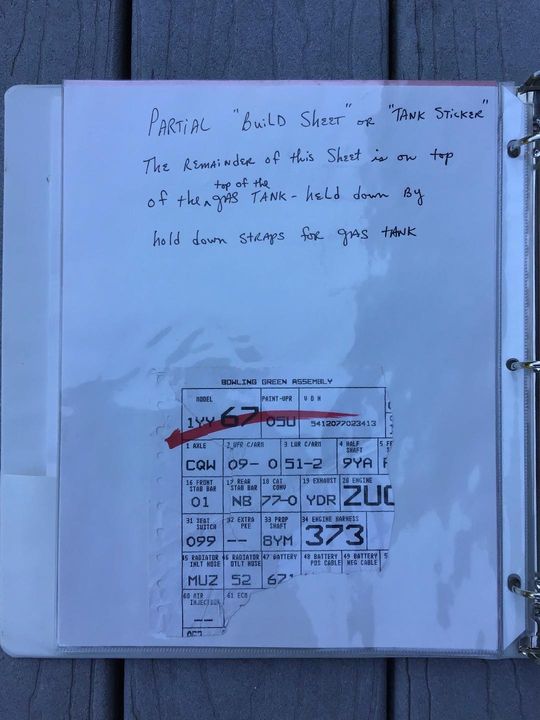 PARTIAL "Build Sheet" OR "TANK STICKER"
The REMAINDER of this Sheet is on top
top of the
of the gAS TANK - held down By
hold down STRAPS for gAS tANK
BOWLING GREEN ASSEMBLY
MODEL PAINT-UPR V O H
1YY 67 05U 5412077023413
1 AXLE 2 UPR C/ARM 3 LWR C/ARM 4 HALF SHAFT 5
CQW 09- 0 51-2 9YA
16 FRONT STAB BAR 17 REAR STAB BAR 18 CAT CONV 19 EXHAUST 20 ENGINE
01 NB 77-0 YDR ZUC
31 SEAT SWITCH 32 EXTRA PKE 33 PROP SHAFT 34 ENGINE HARNESS
099 -- 8YM 373
45 RADIATOR INLT HOSE 46 RADIATOR OTLT HOSE 47 BATTERY 48 BATTERY POS CABLE 49 BATTERY NEG CABLE 5
MUZ 52 67
60 AIR INJECTION 61 ECM
--